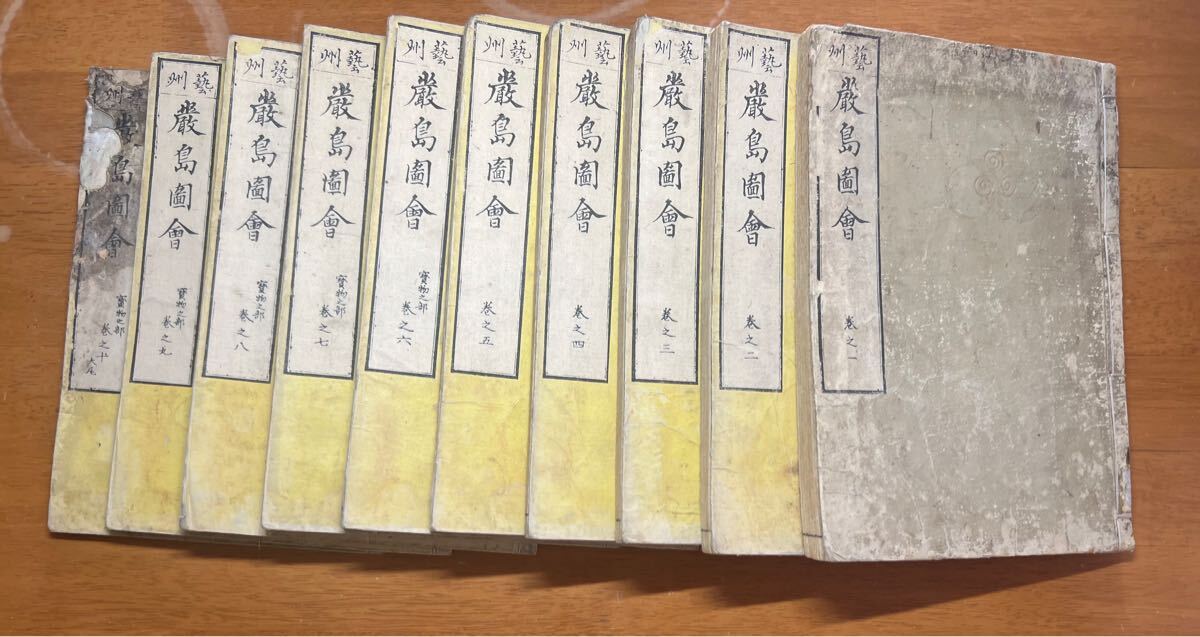 藝州
嚴島圖會
卷之一
藝州
嚴島圖會
卷之二
藝州
嚴島圖會
卷之三
藝州
嚴島圖會
卷之四
藝州
嚴島圖會
卷之五
藝州
嚴島圖會
寶物之部
卷之六
藝州
嚴島圖會
寶物之部
卷之七
藝州
嚴島圖會
寶物之部
卷之八
藝州
嚴島圖會
寶物之部
卷之九
州
嚴島圖會
寶物之部
卷之十
大尾